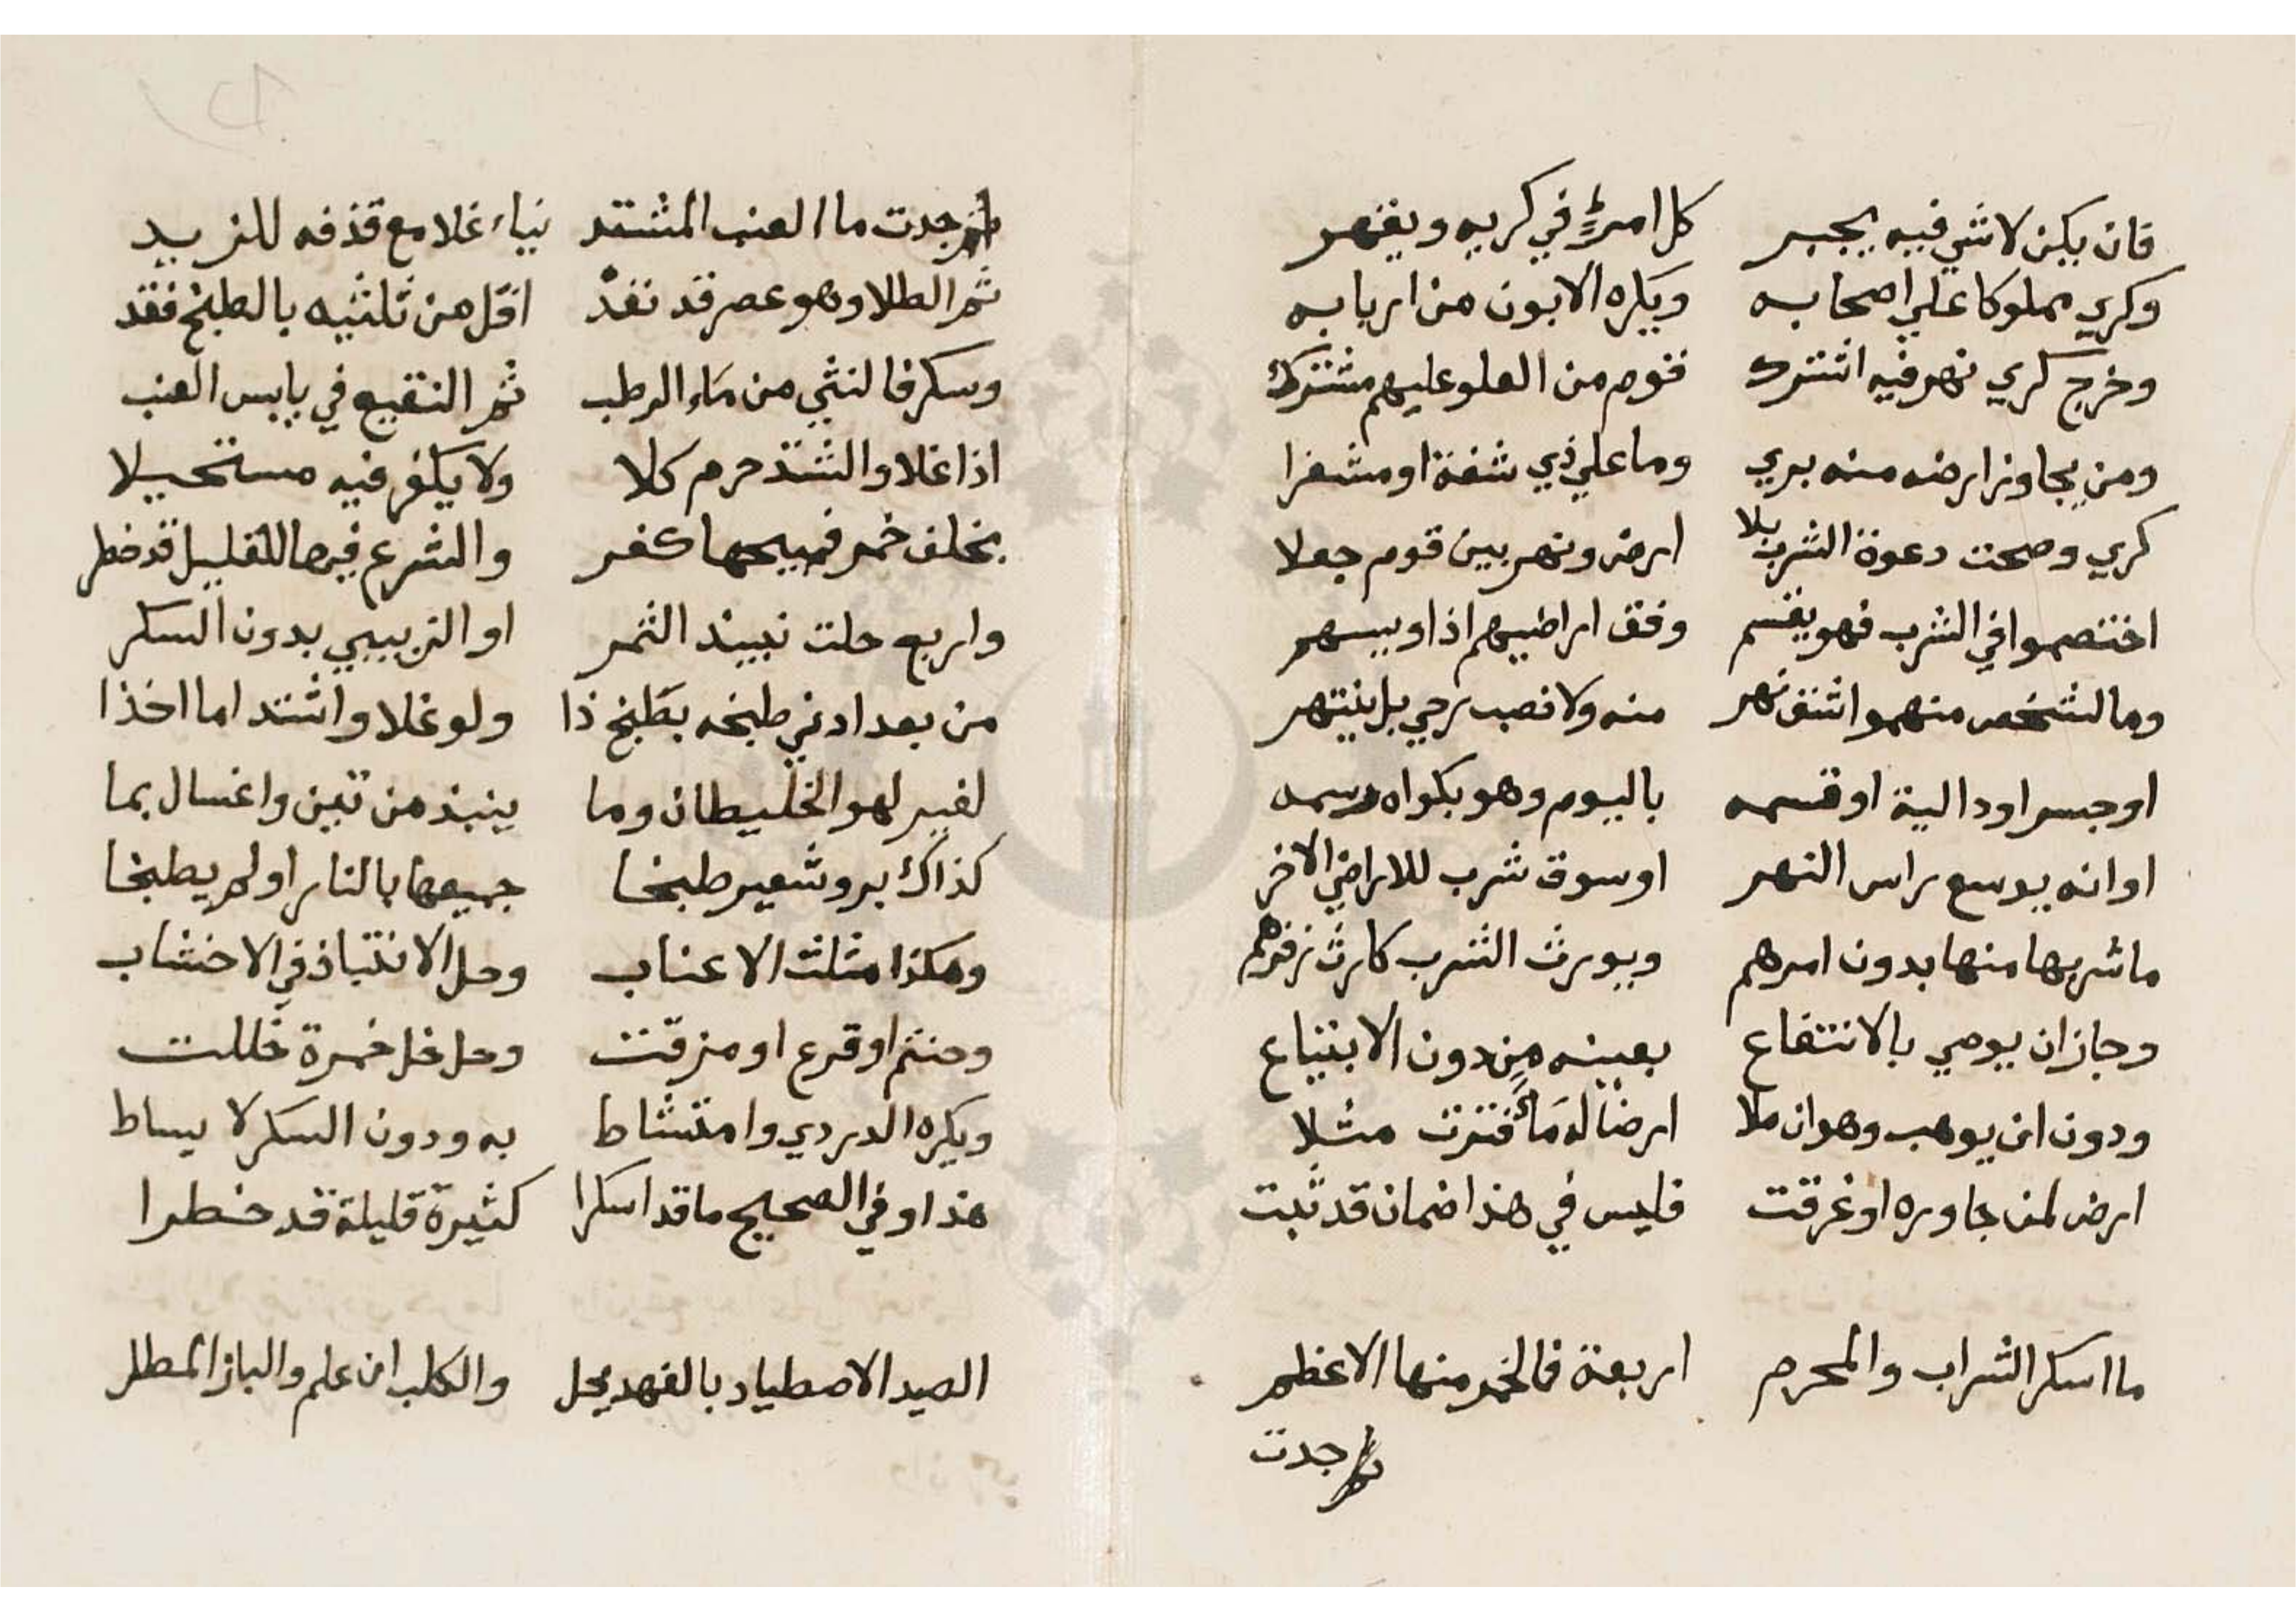 فان يكن لا شي فيه يجبر كل امرئ في كريه ويقهر
وكري مملوكا علي اصحابه ويكره الابون من اربابه
وخرج كري نهر فيه اشترك قوم من العلو عليهم مشترك
ومن يجاوز ارضه منه بري وما علي ذي شفة او مشفرا
كري وصحت دعوة الشرب بلا ارض ونهر بين قوم جعلا
اختصموا في الشرب فهو يقسم وفق اراضيهم اذا وبيسهم
وما لشخص منهموا شق نهر منه ولا نصب رحي بل ينتهر
او جسر او دالية او قسمه باليوم وهو بكواه رسمه
او انه يوسع راس النهر او سوق شرب للاراضي الاخر
ما شربها منها بدون امرهم ويورث الشرب كارث
وجاز ان يوصي بالانتفاع بعينه من دون الابتياع
ودون ان يوهب وهو ان ملا ارضا له ماء فنزت مثلا
ارض لمن جاوره او غرقت فليس في هذا ضمان قد ثبت
ما اسكر الشراب والمحرم اربعة فالخمر منها الاعظم
جدت
جدت ما العنب المشتد نياء غلا مع قذفه للزبيد
ثم الطلا وهو عصر قد نفذ اقل من ثلثيه بالطبخ فقد
وسكر فالنئي من ماء الرطب ثم النقيع في يابس العنب
اذا غلا والشتد حرم كلا ولا يكفر فيه مستحيلا
بخلف خمر فمبيحها كفر والشرع فيها للقليل قد خطر
واربع حلت نبيذ الثمر او الزبيبي بدون السكر
من بعد ادني طبخه بطبخ ذا ولو غلا واشتد اما اخذا
لغير لهو الخليطان وما ينبذ من تين واغسال بما
كذاك بر وشعير طبخا جميعها بالنار او لم يطبخا
وهكذا مثلث الاعناب وحل الانتباذ في الاخشاب
وحنتم او قرع او مزقت وحل خل خمرة خللت
ويكره الدردي وامتشاط به ودون السكر لا يساط
هذا وفي الصحيح ما قد اسكرا كثيرة قليلة قد خطرا
الصيد الاصطياد بالفهد يحل والكلب ان علم والباز المطل